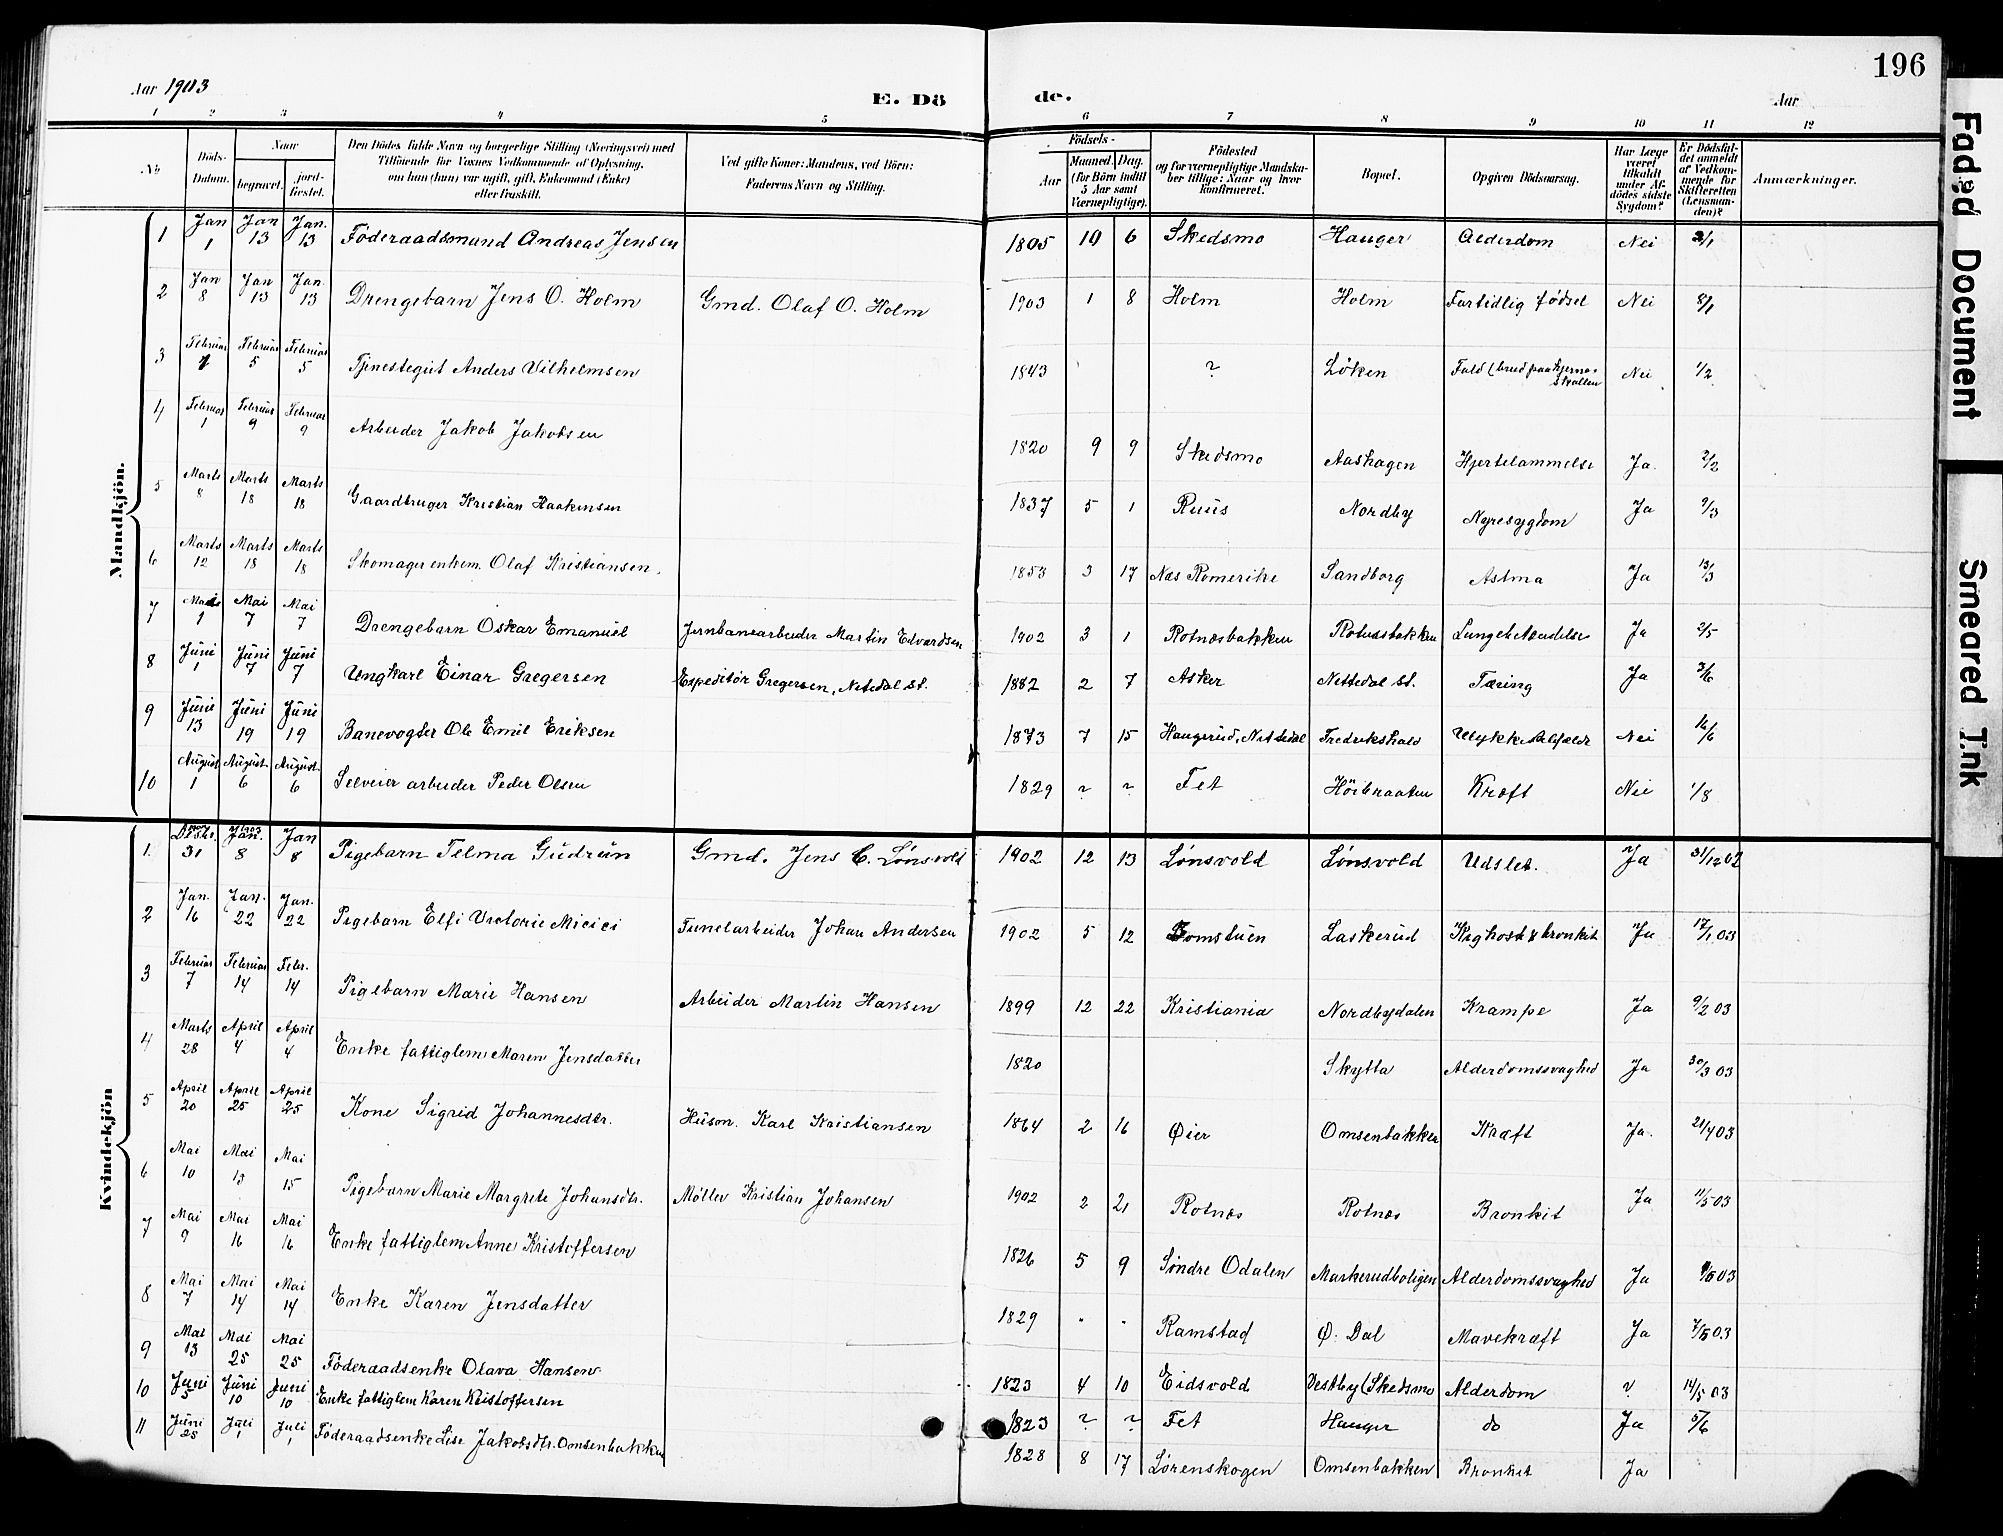 196
Aar 1903 E. Dö de. Aar
1 2 3 4 5 6 7 8 9 10 11 12
No Döds-Datum. Naar begravet. jordfæstet. Den Dödes fulde Navn og borgerlige Stilling (Næringsvei) med Tilföiende för Voxnes Vedkommende af Oplysning, om han (hun) var ugift, gift, Enkemand (Enke) eller fraskilt. Ved gifte Koner: Mandens, ved Börn: Faderens Navn og Stilling. Födsels- Aar Maaned. Dag. (for Börn indtil 5 Aar samt Værnepligtige). Födested og for værnepligtige Mandskaber tillige: Naar og hvor konfirmeret. Bopæl. Opgiven Dödsaarsag. Har Læge været tilkaldt under Afdödes sidste Sygdom? Er Dödsfaldet anmeldt af Vedkommende for Skifteretten (Lensmanden)? Anmærkninger.
Mandkjön.
1 Jan 1 Jan 13 Jan. 13 Föderaadsmand Andreas Jensen 1805 10 6 Skedsmo Hauger Alderdom Nei 2/1
2 Jan 8 Jan 13 Jan. 13 Drengebarn Jens O. Holm Gmd. Olaf O. Holm 1903 1 8 Holm Holm Fortidlig födsel Nei 8/1
3 Februar 1 Februar 5 Februar 5 Tjenestegut Anders Vilhelmsen 1843 ? Löken Fald (brud paa hjerneskallen Nei 1/2
4 Februar 1 Februar 9 Februar 9 Arbeider Jakob Jakobsen 1820 9 9 Skedsmo Aashagen Hjertelammelse Ja. 2/2
5 Marts 8 Marts 18 Marts 18 Gaardbruger Kristian Haakensen 1837 5 1 Ruus Nordby Nyresygdom Ja 9/3
6 Marts 12 Marts 18 Marts 18 Skomager enkem. Olaf Kristiansen. 1853 3 17 Næs Romerike Sandborg Astma Ja 13/3
7 1 Mai 7 Mai 7 Drengebarn Oskar Emanuel Jernbanearbeider Martin Edvardsen 1902 3 1 Rotnæsbakken Rotnæsbakken Lungebetændelse Ja 2/5
8 Juni 1 Juni 7 Juni 7 Ungkarl Einar Gregersen Expeditör Gregersen, Nitedal st. 1882 2 7 Asker Nittedal st. Tæring Ja 3/6
9 Juni 13 Juni 19 Juni 19 Banevogter Ole Emil Eriksen 1873 7 15 Haugerud, Nittedal Fredrikshald Ulykkestilfælde Nei 16/6
10 August 1 August. 6 August. 6 Selveier arbeider Peder Olsen 1829 ? ? Fet Höibraaten Kræft Nei 1/8
Kvindekjön
1. 31 Jan. 8 Jan 8 Pigebarn Telma Gudrun Gmd. Jens C. Lönsvold 1902 12 13 Lönsvold Lönsvold Udslet. Ja 31/12 02
2 Jan. 16 Jan. 22 Jan. 22 Pigebarn Elfi Victorie Tunelarbeider Johan Andersen 1902 5 12 Bomstuen Laskerud Kighoste & bronkit Ja 17/1 03
3 Februar 7 Februar 14 Febr. 14 Pigebarn Marie Hansen Arbeider Martin Hansen 1899 12 22 Kristiania Nordbydalen Krampe Ja 9/2 03
4 Marts 28 April 4 April 4 Enke fattiglem Maren Jensdatter 1820 Skytta Alderdomssvaghed Ja 30/3 03
5 April 20 April 25 April 25 Kone Sigrid Johannesdtr. Husm. Karl Kristiansen 1864 2 16 Øier Omsenbakken Kræft Ja. 21/4 03
6 Mai 10 Mai 13 Mai 15 Pigebarn Marie Margrete Johansdtr. Möller Kristian Johansen 1902 2 21 Rotnæs Rotnæs Bronkit Ja 11/5 03
7 Mai 9 Mai 16 Mai 16 Enke fattiglem Anne Kristoffersen 1826 5 9 Söndre Odalen Markerudboligen Alderdomssvaghed Ja 9/5 03
8 Mai 7 Mai 14 Mai 14 Enke Karen Jensdatter 1829 " " Ramstad Ø. Dal Mavekræft Ja 7/5 03
9 Mai 13 Mai 25 Mai 25 Föderaadsenke Olava Hansen 1823 4 10 Eidsvold Vestby (Skedsmo Alderdom ? 14/5 03
10 Juni 5 Juni 10 Juni 10 Enke fattiglem Karen Kristoffersen 1823 ? ? Fet Hauger do Ja 5/6
11 Juni 25 Juli 1 Juli 1 Föderaadsenke Lise Jakobsdtr. Omsenbakken 1828 8 17 Lörenskogen Omsenbakken Bronkit Ja
Faded Document
Smeared Ink